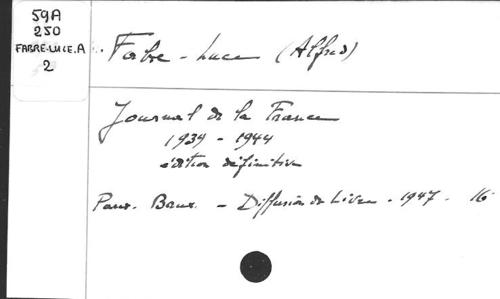 59A
250
FABRE-LUCE.A
2
Fabre-Luce (Alfred)
Journal de la France
1939 - 1944
édition définitive
Paris. - Diffusion du Livre. 1947. 16